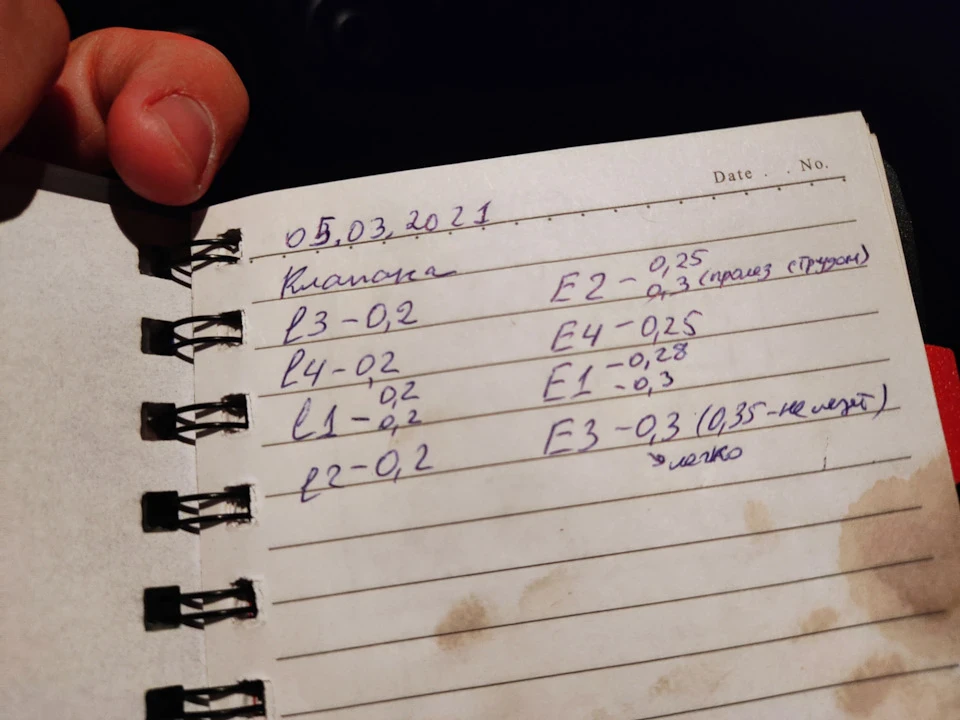 Date . . No.
05.03.2021
Клапана
l3 - 0,2
l4 - 0,2
l1 - 0,2
0,2
l2 - 0,2
E2 - 0,25
0,3 (пролез с трудом)
E4 - 0,25
E1 - 0,28
- 0,3
E3 - 0,3 (0,35 - не лезет)
легко